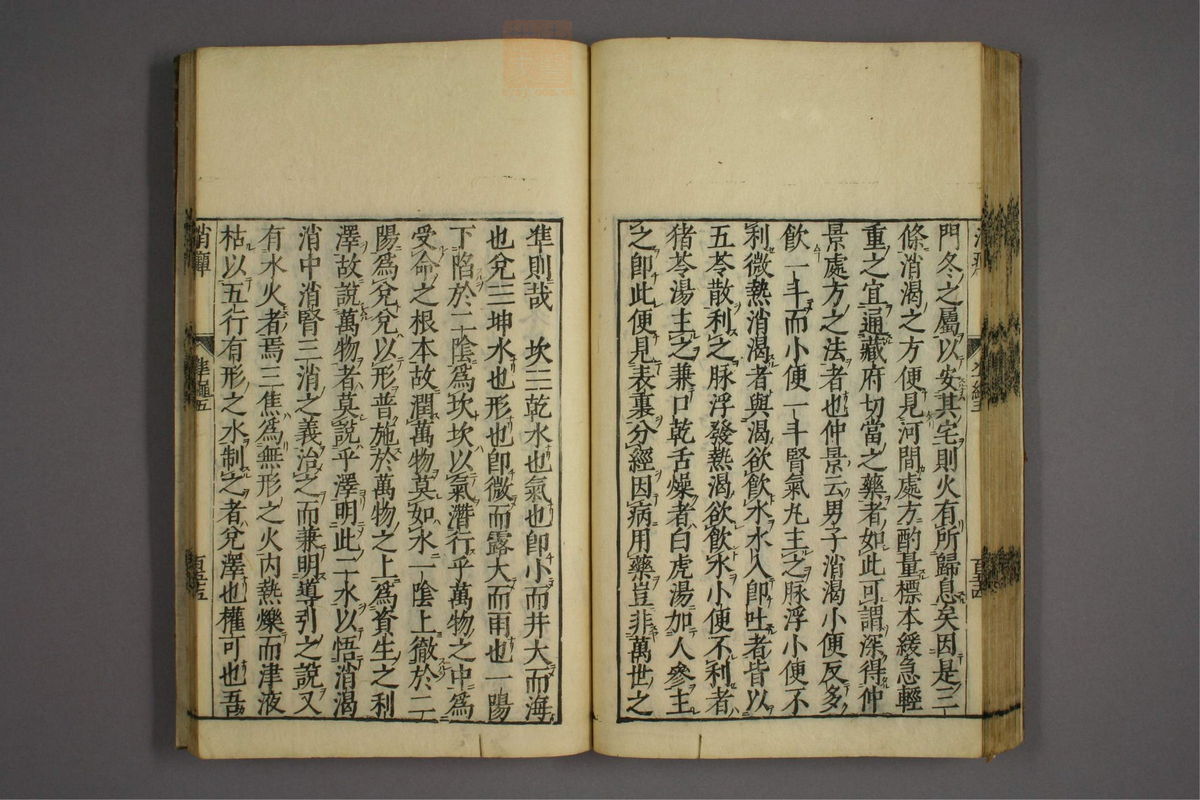 門冬之屬以安其宅則火有所歸息矣因是三
條消渴之方便見河間處方酌量標本緩急輕
重之宜通藏府切當之藥者如此可謂深得仲
景處方之法者也仲景云男子消渴小便反多
飲一斗而小便一斗腎氣丸主之脉浮小便不
利微熱消渴者與渴欲飲水水入即吐者皆以
五苓散利之脉浮發熱渴欲飲水小便不利者
猪苓湯主之兼口乾舌燥者白虎湯加人參主
之即此便見表裏分經因病用藥豈非萬世之
準則哉 坎三乾水也氣也即小而井大而海
也兌三坤水也形也即微而露大而雨也一陽
下陷於二陰爲坎坎以氣潛行乎萬物之中爲
受命之根本故潤萬物莫如水一陰上徹於二
陽爲兌兌以形普施於萬物之上爲資生之利
澤故説萬物者莫説乎澤明此二水以悟消渴
消中消腎三消之義治之而兼明導引之説又
有水火者焉三焦爲無形之火内熱爍而津液
枯以五行有形之水制之者兌澤也權可也吾
消癉
準繩五